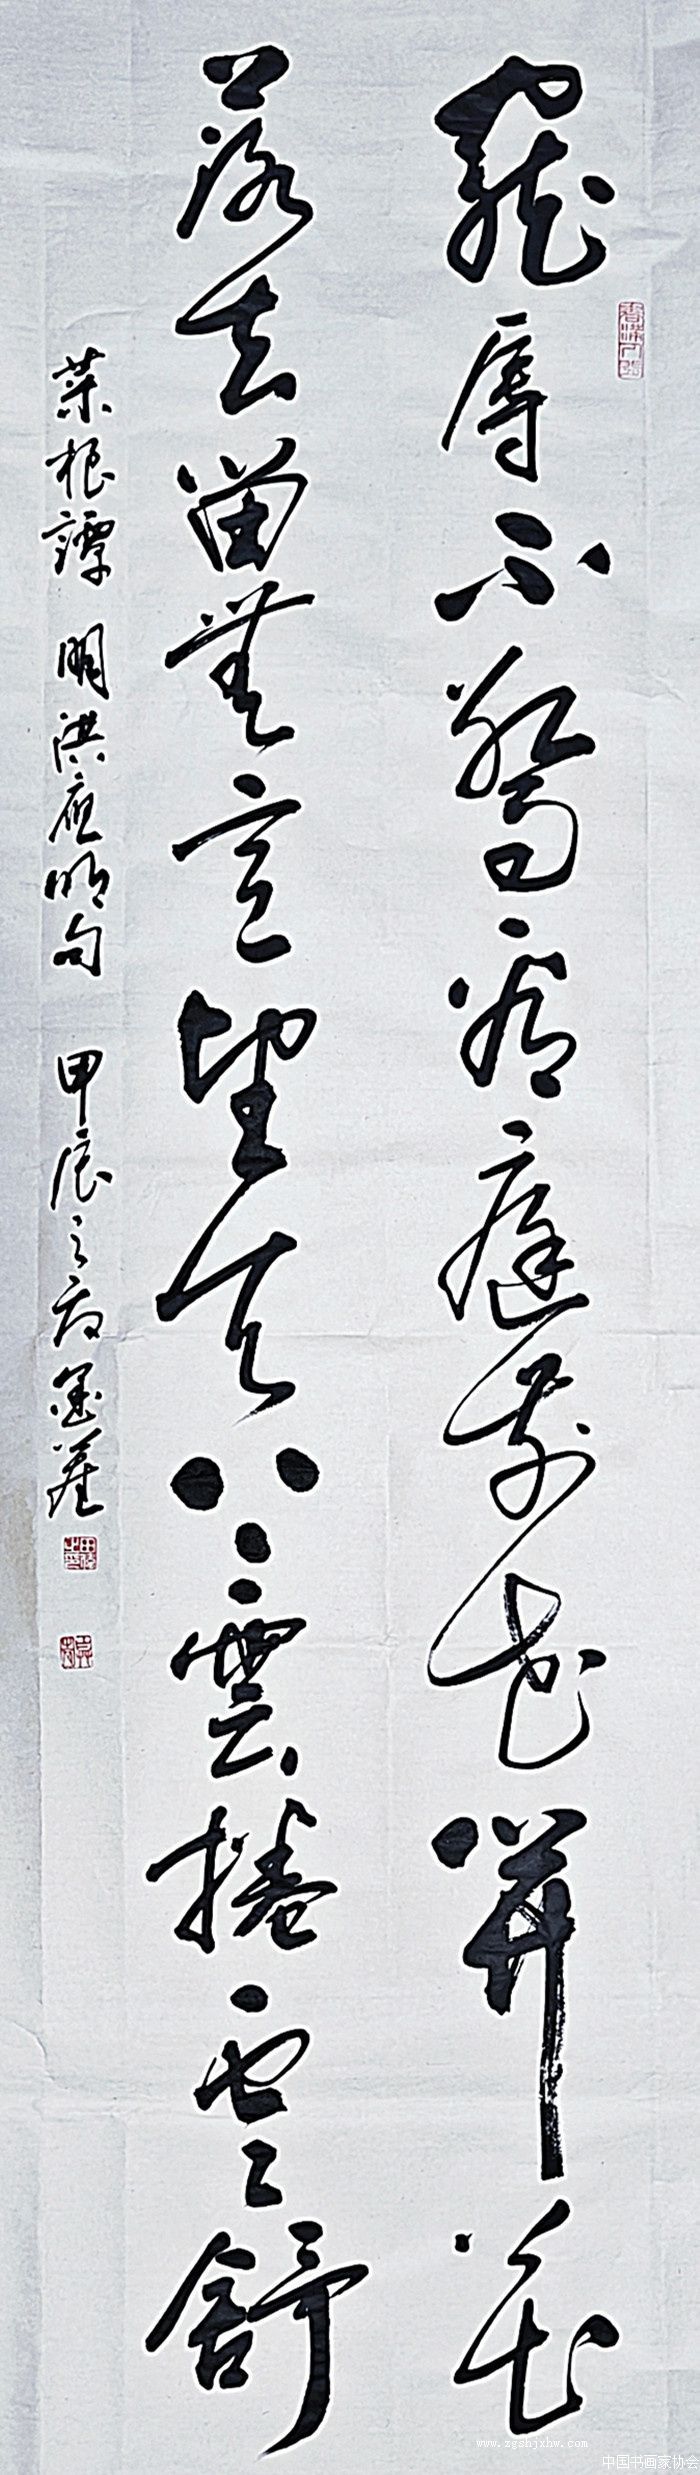 寵辱不驚看庭前花開花
落去留無意望天雲捲雲舒
菜根譚 明洪應明句 甲辰之
www.zgshjxhw.com
中国书画家协会